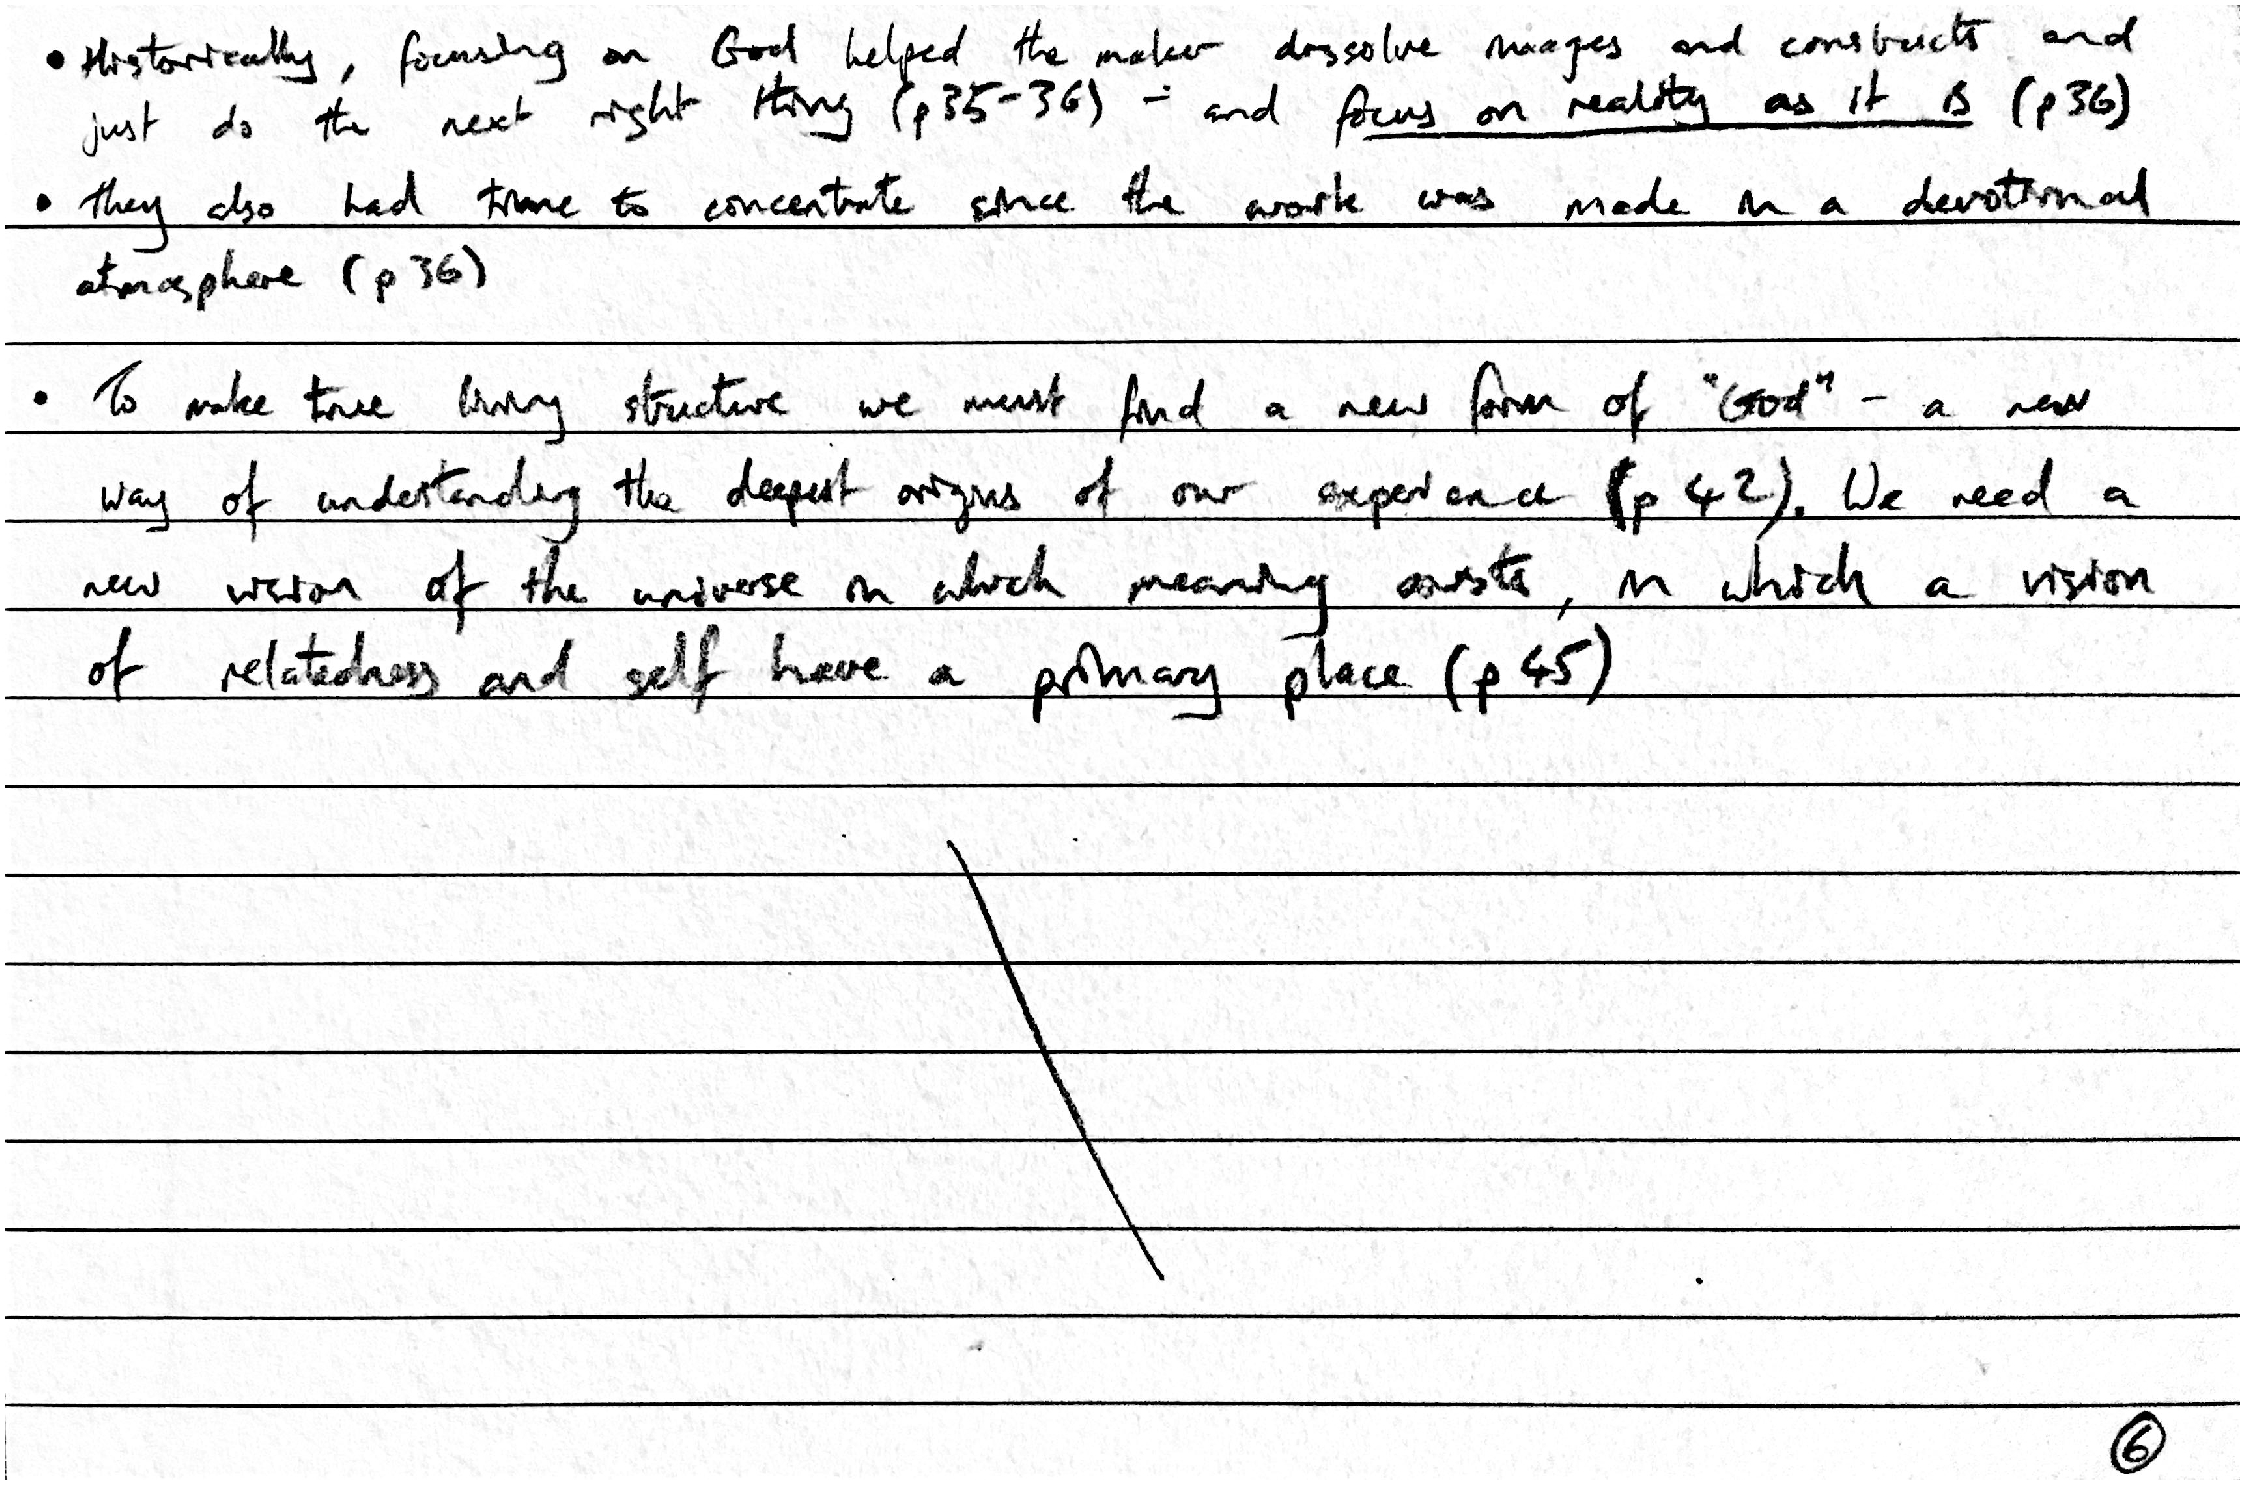 • Historically, focusing on God helped the maker dissolve images and constructs and
just do the next right thing (p35-36) - and focus on reality as it is (p36)
• they also had time to concentrate since the work was made in a devotional
atmosphere (p36)
• To make true living structure we must find a new form of "God" - a new
way of understanding the deepest origins of our experience (p 42). We need a
new vision of the universe in which meaning exists, in which a vision
of relatedness and self have a primary place (p 45)
6